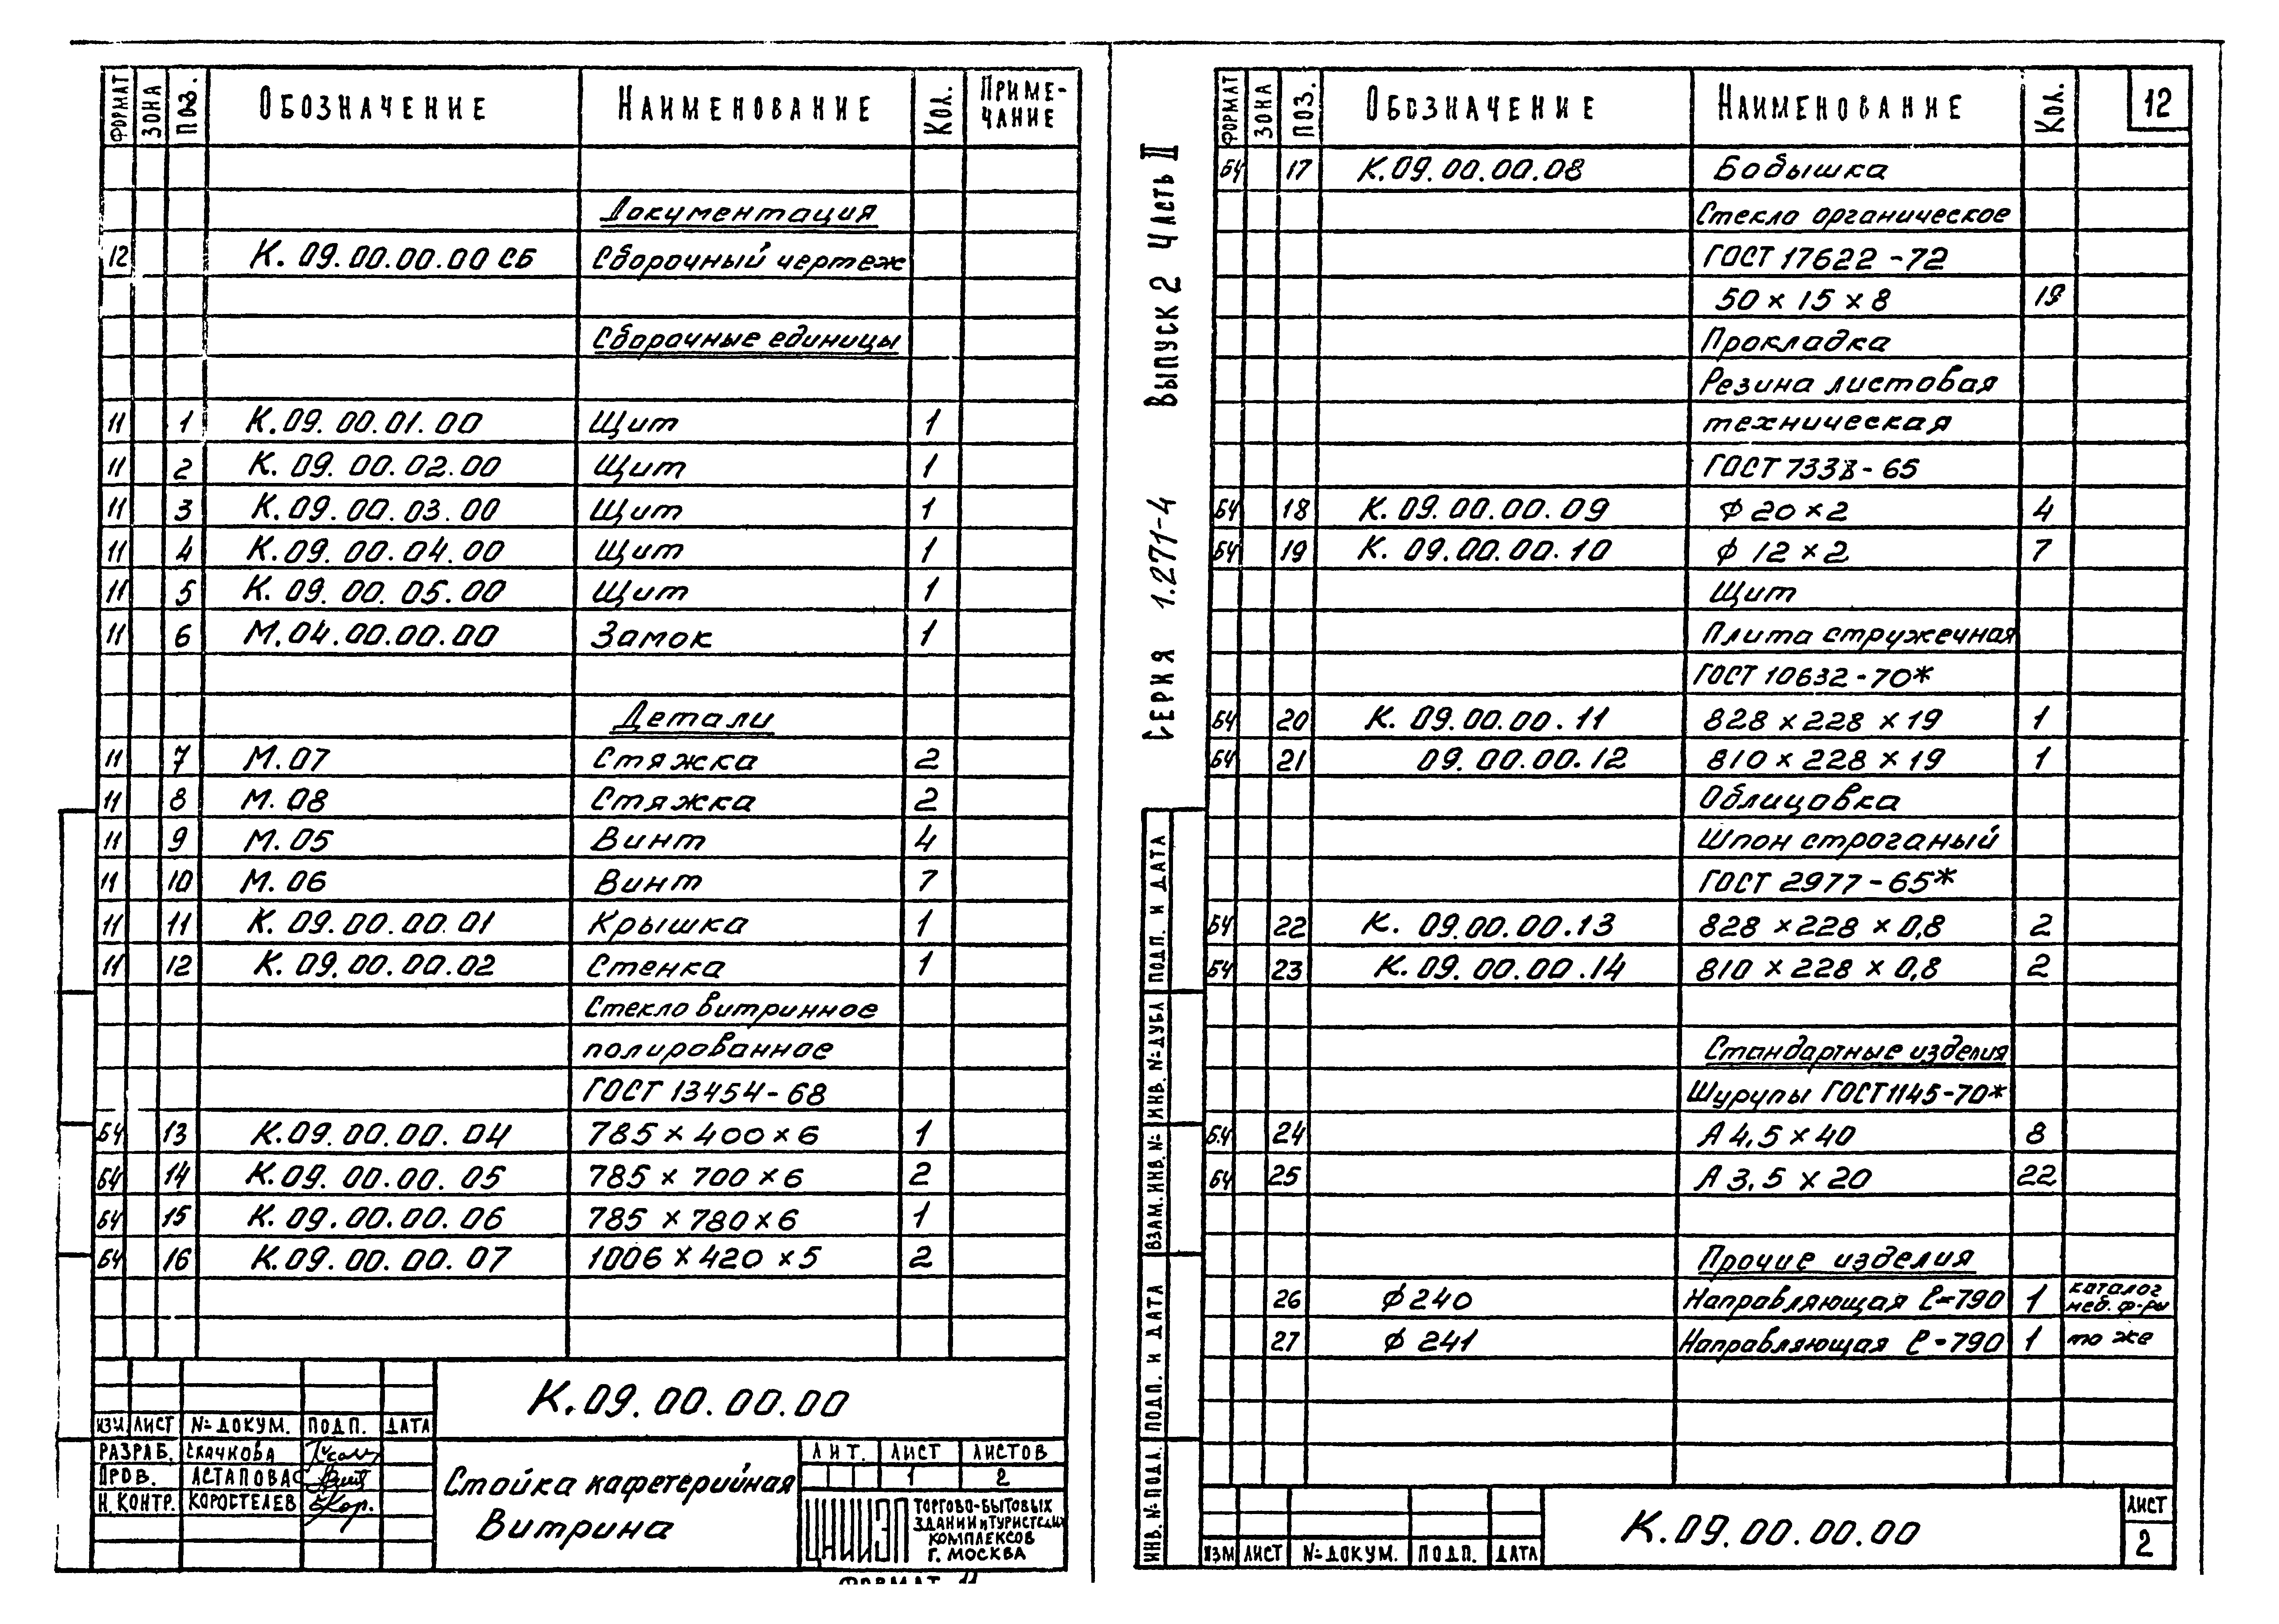 ФОРМАТ ЗОНА ПОЗ. ОБОЗНАЧЕНИЕ НАИМЕНОВАНИЕ КОЛ. ПРИМЕ-
ЧАНИЕ
Документация
12 К. 09.00.00.00 СБ Сборочный чертеж
Сборочные единицы
11 1 К.09.00.01.00 Щит 1
11 2 К.09.00.02.00 Щит 1
11 3 К.09.00.03.00 Щит 1
11 4 К.09.00.04.00 Щит 1
11 5 К.09.00.05.00 Щит 1
11 6 М.04.00.00.00 Замок 1
Детали
11 7 М.07 Стяжка 2
11 8 М.08 Стяжка 2
11 9 М.05 Винт 4
11 10 М.06 Винт 7
11 11 К.09.00.00.01 Крышка 1
11 12 К.09.00.00.02 Стенка 1
Стекло витринное
полированное
ГОСТ 13454-68
БЧ 13 К.09.00.00.04 785 × 400 × 6 1
БЧ 14 К.09.00.00.05 785 × 700 × 6 2
БЧ 15 К.09.00.00.06 785 × 780 × 6 1
БЧ 16 К.09.00.00.07 1006 × 420 × 5 2
К.09.00.00.00
ИЗМ ЛИСТ № ДОКУМ. ПОДП. ДАТА
РАЗРАБ. СКАЧКОВА
ПРОВ. АСТАПОВА
Н.КОНТР. КОРОСТЕЛЕВ
Стойка кафетерийная
Витрина
ЛИТ. ЛИСТ ЛИСТОВ
1 2
ЦНИИЭП
ТОРГОВО-БЫТОВЫХ
ЗДАНИЙ И ТУРИСТСКИХ
КОМПЛЕКСОВ
Г. МОСКВА
ФОРМАТ 11
СЕРИЯ 1.271-4 ВЫПУСК 2 ЧАСТЬ II
ФОРМАТ ЗОНА ПОЗ. ОБОЗНАЧЕНИЕ НАИМЕНОВАНИЕ КОЛ. 12
БЧ 17 К.09.00.00.08 Бобышка
Стекло органическое
ГОСТ 17622-72
50 × 15 × 8
Прокладка
Резина листовая
техническая
ГОСТ 7338-65
БЧ 18 К.09.00.00.09 ϕ 20 × 2 4
БЧ 19 К.09.00.00.10 ϕ 12 × 2 7
Щит
Плита стружечная
ГОСТ 10632-70*
БЧ 20 К.09.00.00.11 828 × 228 × 19 1
БЧ 21 09.00.00.12 810 × 228 × 19 1
Облицовка
Шпон строганый
ГОСТ 2977-65*
БЧ 22 К.09.00.00.13 828 × 228 × 0,8 2
БЧ 23 К.09.00.00.14 810 × 228 × 0,8 2
Стандартные изделия
Шурупы ГОСТ 1145-70*
БЧ 24 А 4,5 × 40 8
БЧ 25 А 3,5 × 20 22
Прочие изделия
26 ϕ 240 Направляющая ℓ=790 1 каталог
меб. ф-ры
27 ϕ 241 Направляющая ℓ=790 1 то же
ИНВ. № ПОДЛ. ПОДП. И ДАТА ВЗАМ. ИНВ. № ИНВ. № ДУБЛ ПОДП. И ДАТА
ИЗМ ЛИСТ № ДОКУМ. ПОДП. ДАТА
К.09.00.00.00
ЛИСТ
2